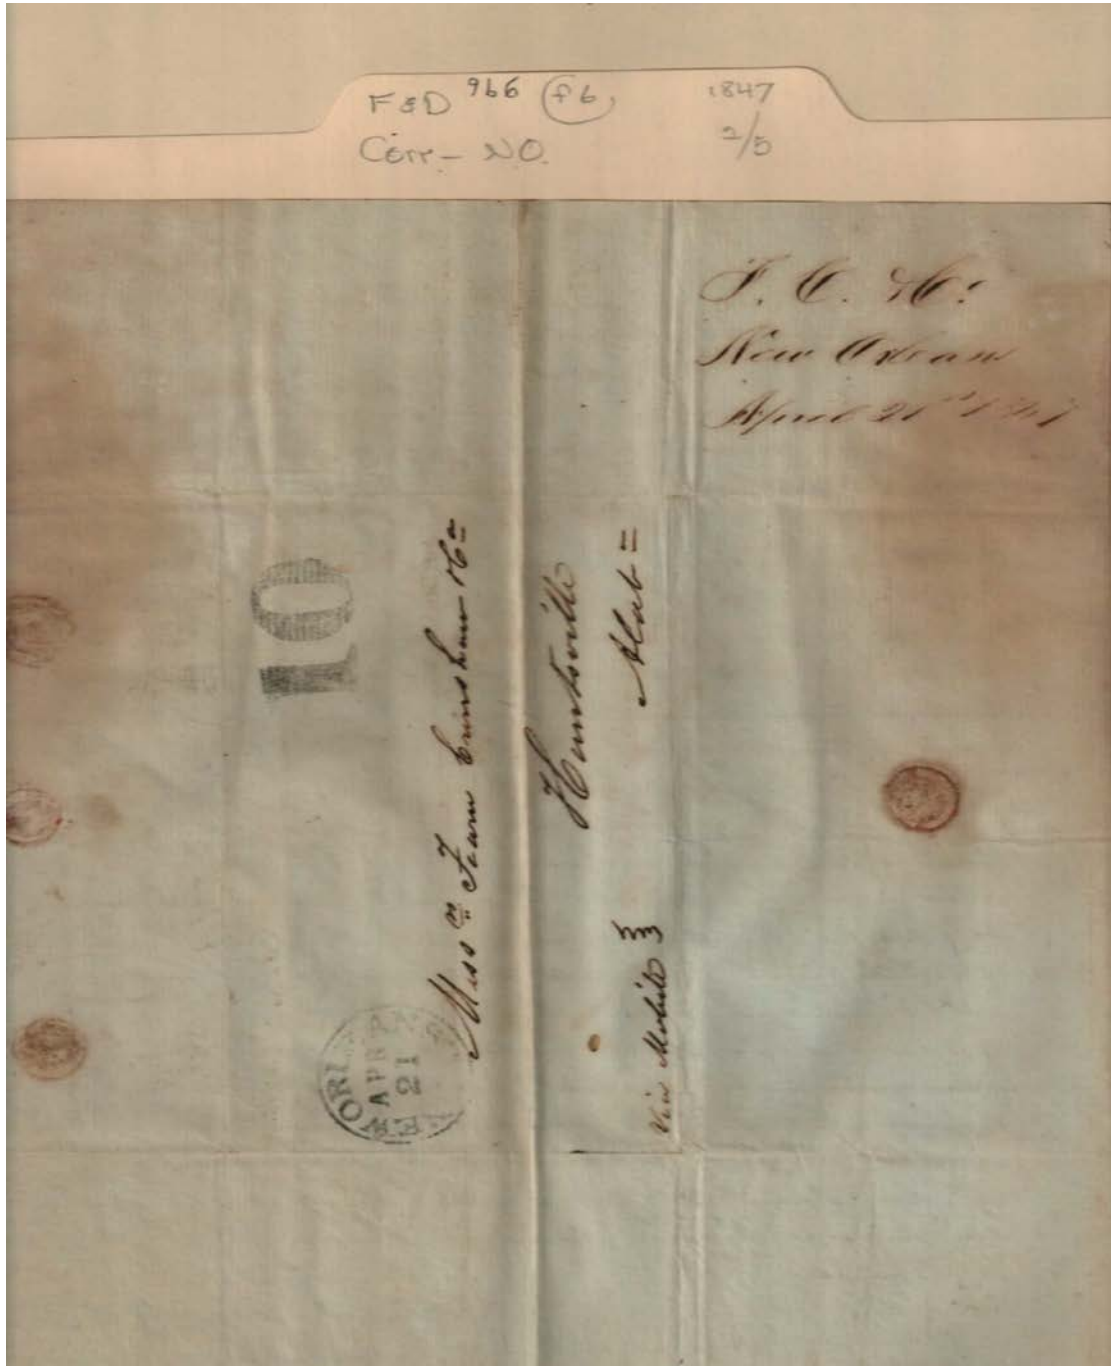 F&D 966 (f6) 1847
Corr - NO. 2/5
New Orleans
April 21st 1847
10
NEW ORLEANS
APR
21
Mess rs Fearn & Co
Huntsville
Ala =
Via Mobile